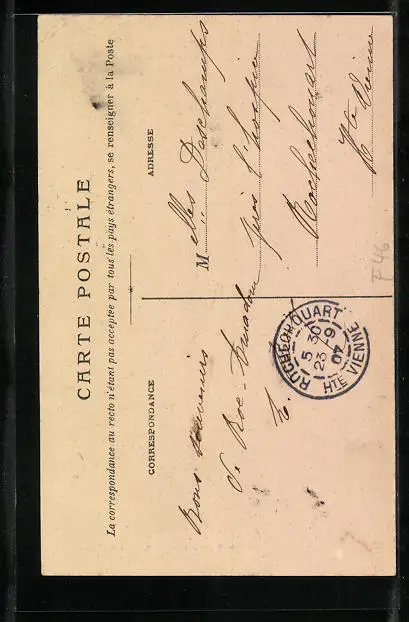 CARTE POSTALE
La correspondance au recto n'étant pas acceptée par tous les pays étrangers, se renseigner à la Poste
CORRESPONDANCE
ADRESSE
Bons souvenirs
de Roc-Amadour
E.
Melles Deschamps
près l'hospice
Rochechouart
Hte Vienne
ROCHECHOUART
5 30
23 -9
07
HTE VIENNE
F46